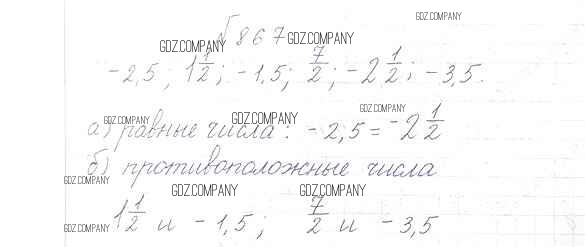 GDZ.COMPANY
№867
GDZ.COMPANY GDZ.COMPANY
-2,5; 1 1/2; -1,5; 7/2; -2 1/2; -3,5.
GDZ.COMPANY GDZ.COMPANY GDZ.COMPANY
а) равные числа: -2,5 = -2 1/2
б) противоположные числа
GDZ.COMPANY GDZ.COMPANY GDZ.COMPANY
1 1/2 и -1,5; 7/2 и -3,5
GDZ.COMPANY